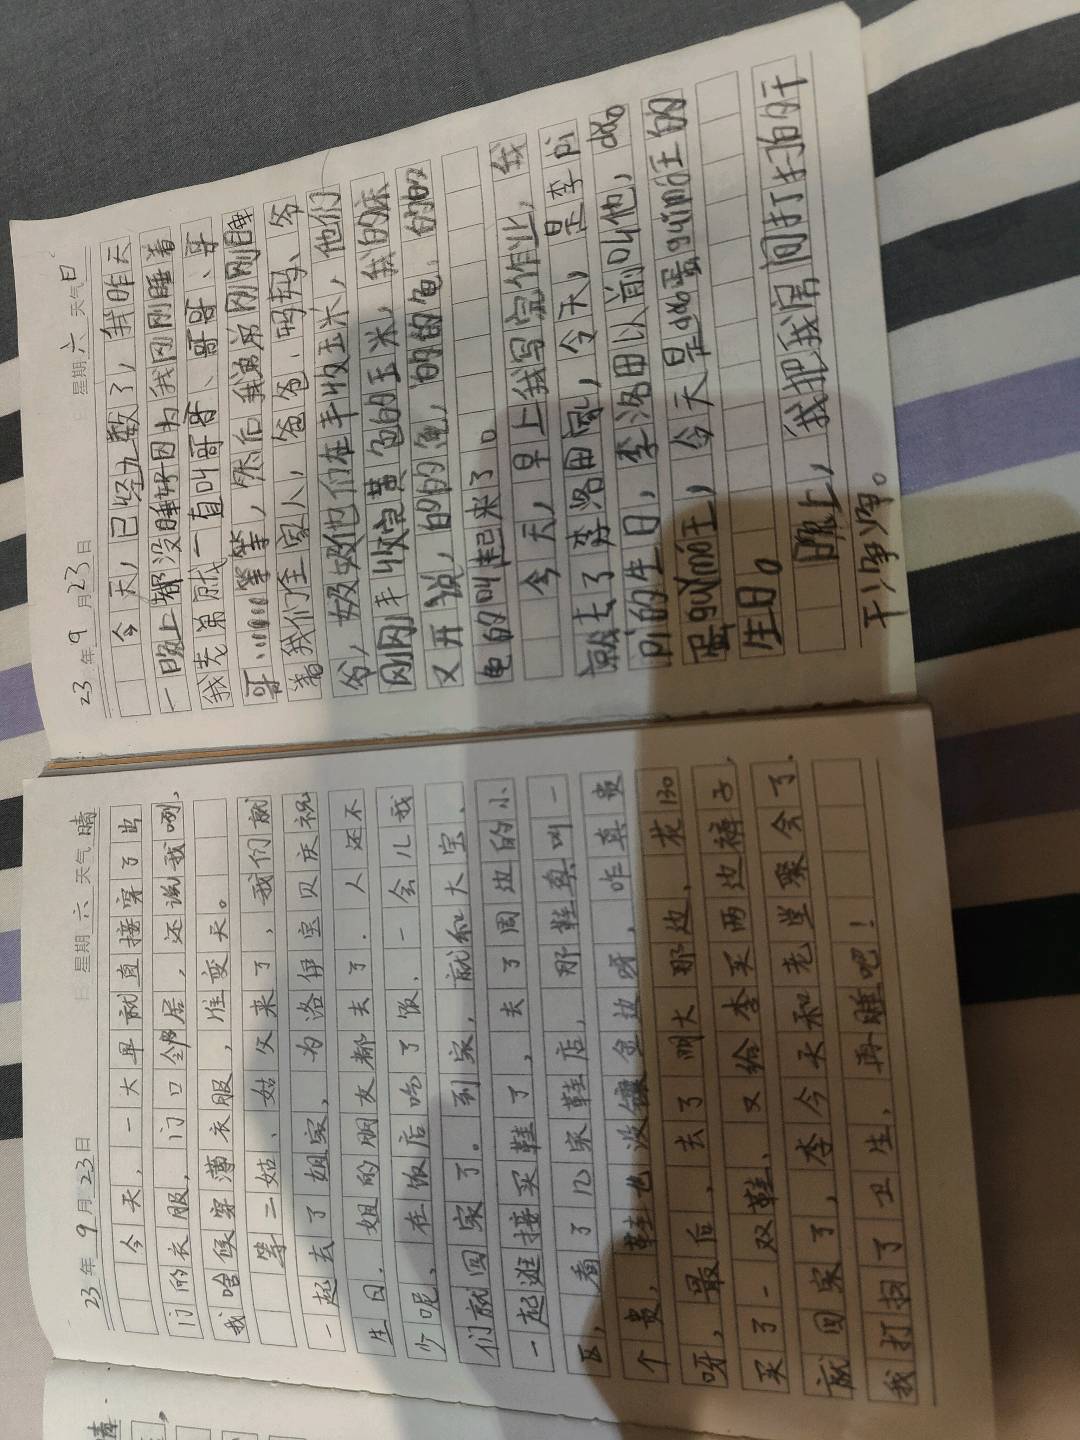 23年9月23日 星期六 天气晴
今天，一大早就直接穿了出
门的衣服，门口邻居，还说我咧，
我啥候穿薄衣服，准变天。
等二姑、姑父来了，我们就
一起去了姐家，为洛伊宝贝庆祝
生日．姐的朋友都去了．人还不
少呢、在饭店吃了饭，一会儿我
们就回家了。到家，就和大宝、
一起逛接买鞋了，去了周边的小
区，看了几家鞋店，那鞋卖叫一
个贵，鞋也没镶金边呀，咋真贵
呀，最后、去了明大那边、花130
买了一双鞋、又给李买两边裤子，
就回家了，李今天和老望聚会了．
我打扫了卫生，再睡吧！
23年9月23日 星期六 天气日
今天，已经九数了，我昨天
一晚上都没睡好因为我刚刚睡着
我老弟就一直叫哥哥、哥哥、哥
哥……等等，然后我弟弟刚刚睡
着我们全家人，爸爸、妈妈、爷
爷，奶奶他们在丰收玉米，他们
刚刚丰收完黄色的玉米，我的床
又开说，的的的龟，的的的龟，的的
龟的叫起来了。
今天，早上我写完作业，我
就去了李洛田家，今天，是李pi
pi的生日，李洛田以前叫他，das
蛋guǐ mō王，今天是das蛋guǐ mō王的
生日。
晚上，我把我房间打扫的干
干净净。